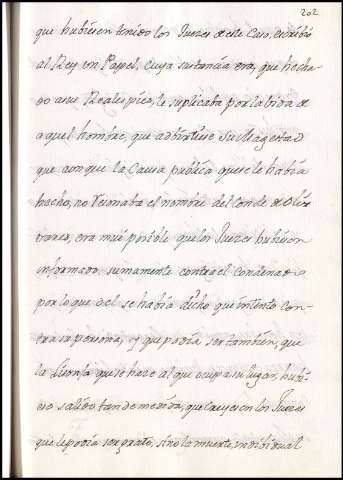 202
que hubiesen tenido los Juezes de este Caso, escribio
al Rey un Papel, cuya sustancia era, que hecha-
do a sus Reales pies, le suplicaba por la bida de
aquel hombre, que adbirtiese Su Magestad
que aunque la Causa publica que se le habia
hecho, no resonaba el nombre del Conde de Oliv
vares, era mui posible que los Juezes hubiesen
informado sumamente contra el Condenado
por lo que del se habia dicho que intento con-
tra su persona, y que podia ser tambien, que
la lisonja que se haze al que ocupa su lugar, hubi-
ese salido tan de medida, que creyesen los Juezes
que le podia ser grato, sino la muerte, indibidual